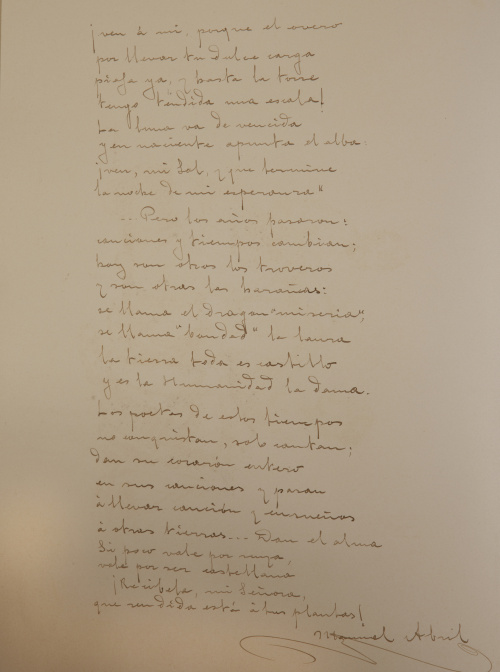 ¡ven á mi, porque el overo
por llevar tu dulce carga
piafa ya, y hasta la torre
tengo tendida una escala!
La luna va de vencida
y en naciente apunta el alba:
¡ven, mi Sol, y que termine
la noche de mi esperanza"
...Pero los años pasaron:
canciones y tiempos cambian;
hoy son otros los troveros
y son otras las hazañas:
se llama el Dragon "miseria",
se llama "bondad" la lanza
la tierra toda es castillo
y es la Humanidad la dama.
Los poetas de estos tiempos
no conquistan, solo cantan;
dan su corazón entero
en sus canciones y pasan
á llevar canción y ensueños
á otras tierras... Dan el alma
Si poco vale por suya,
vale por ser castellana
¡Recíbela, mi Señora,
que rendida está á tus plantas!
Manuel Abril